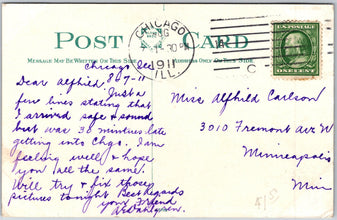 POST CARD
CHICAGO
ILL.
1911
U.S. POSTAGE
ONE CENT
MESSAGE MAY BE WRITTEN ON THIS SIDE
ADDRESS ONLY ON THIS SIDE
Chicago Ill.
8-7-11
Dear Alfhild
Just a
few lines stating that
I arrived safe & sound
but was 30 minutes late
getting into Chgo. I am
feeling well & hope
you all the same.
Will try & fix those
pictures tonight. Best regards
your friend
Miss Alfhild Carlson
3010 Fremont Av. N
Minneapolis
Minn